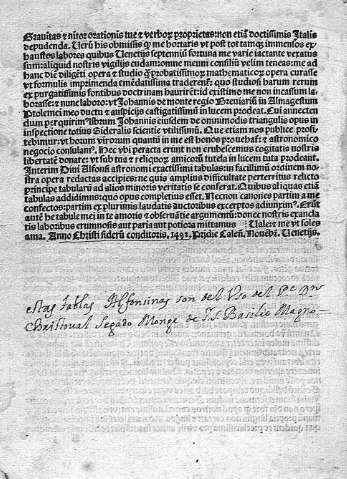 Grauitas & nitor orationis tue & verboꝝ proprietas: non etiā doctissimis Italis
depudenda. Uerū his obmissis ꝙ me hortaris vt post tot tamqꝫ immensos ex
haustos labores quibus Uenetijs septenniū fortuna me varie iactante versatus
sum:aliquid nostris vigilijs cudam:omne meum consiliū velim teneas:me ad
hanc diē diligēti opera & studio ꝙ̄probatissimoꝝ mathematicoꝝ opera curasse
vt formulis imprimenda emēdatissima traderenē: quo studiosi harum rerum
ex purgatissimis fontibus doctrinam haurirēt:id existimo me non incassum la
borasse:ꝫ nunc laboro: vt Johannis de monte regio Breuiariū in Almagestum
Ptolemei meo ductu & auspicijs castigatissimū in lucem prodeat. Cui annecten
dum per quirim librum Johannis eiusdem de omnimodis triangulis opus in
inspectione totius Sideralis scientie vtilissimū. Que etiam nos publice profi
tebimur:vt horum virorum quanti in me est honos
negocio consulam. Hec vbi peracta erunt non erubescemus cogitata nostra
libertate donare: vt sub tua & reliquoꝝ amicorū tutela in lucem tuta prodeant.
Interim Diui Alfonsi astronomi exactissimi tabulas:in facillimū ordinem no
stra opera redactas accipies:ne quis amplius difficultate perterritus relecto
principe tabularū ad alios minoris veritatis se conferat. Quibus aliquas etiā
tabulas addidimus: quo opus completius esset. Necnon canones partim a me
confectos: partim ex plurimis laudatis auctoribus exceptos adiunxim⁹. Erūt
autē he tabule mei in te amoris & obseruātie argumentū: donec nostris exancla
tis laboribus erumnosis aut paria aut potiora mittamus Ualeꝫ me vt soles
ama. Anno Christi siderū conditoris, 1492. Pridie Calen̄. Nouēb̄. Uenetijs.
estas tablas Alfonsinas son del Vso del Pe Dn
Christoual Segado Monge de S. Basilio Magno